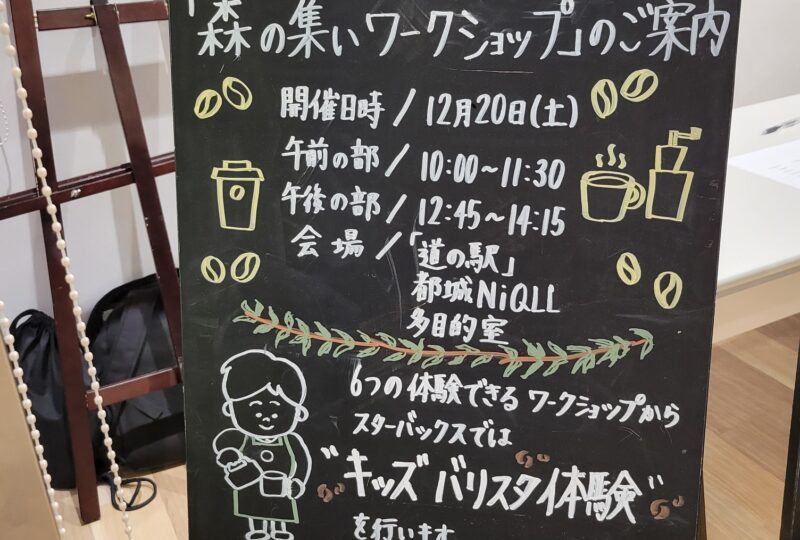 「森の集いワークショップ」のご案内
開催日時/12月20日(土)
午前の部/10:00~11:30
午後の部/12:45~14:15
会場/「道の駅」
都城NiQLL
多目的室
6つの体験できるワークショップから
スターバックスでは
"キッズバリスタ体験"
を行います